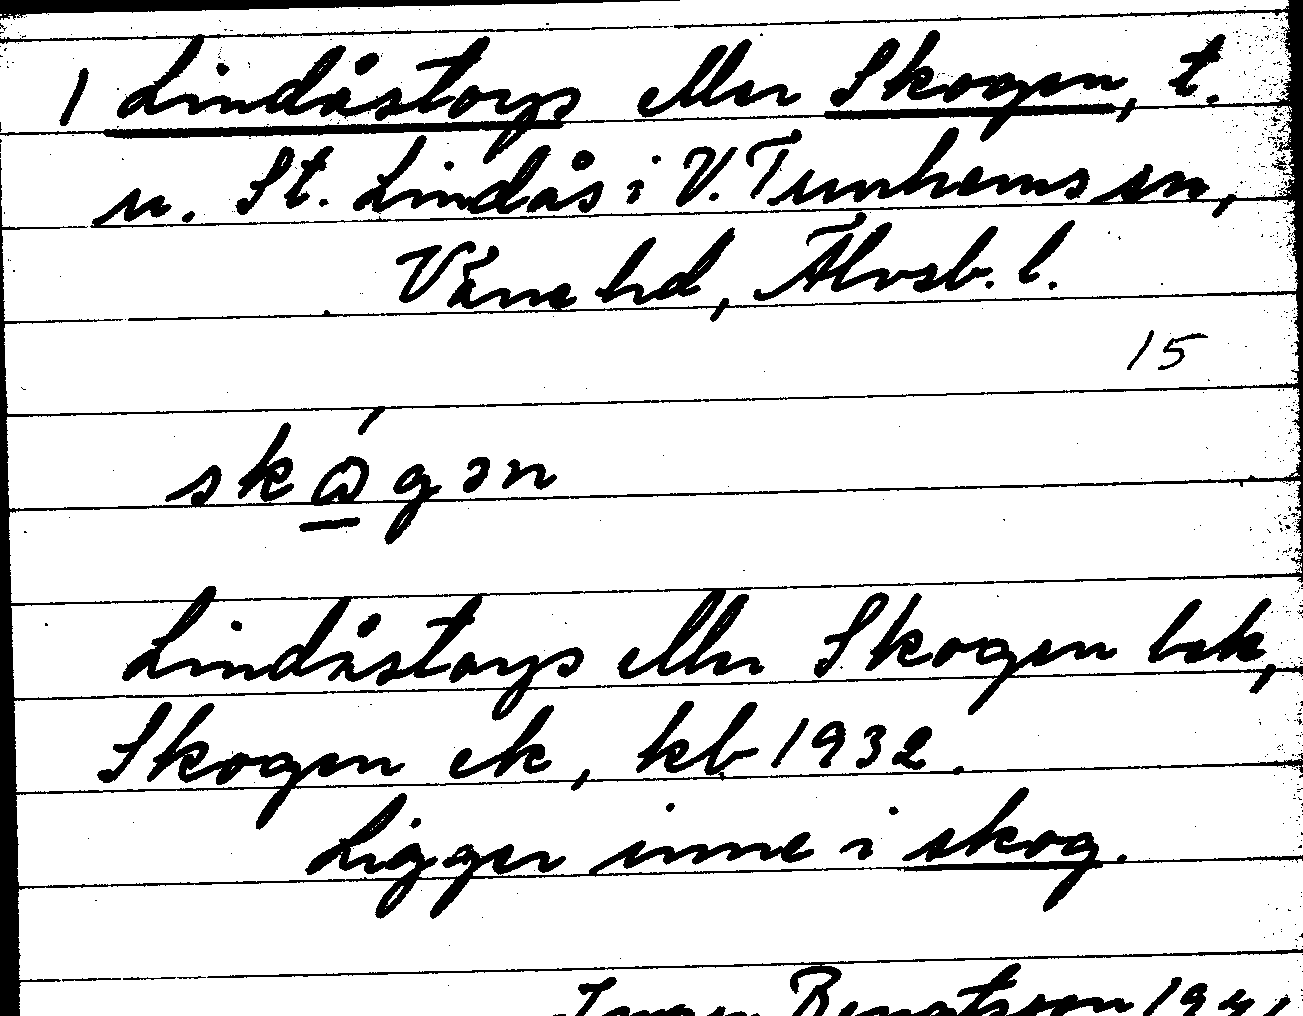 1 Lindåstorp eller Skogen, t.
u. St. Lindås i V. Tunhems sn,
Väne hd, Älvsb. l.
15
skǫ́gən
Lindåstorp eller Skogen bek,
Skogen ek, kb 1932.
Ligger inne i skog.
Bengtsson